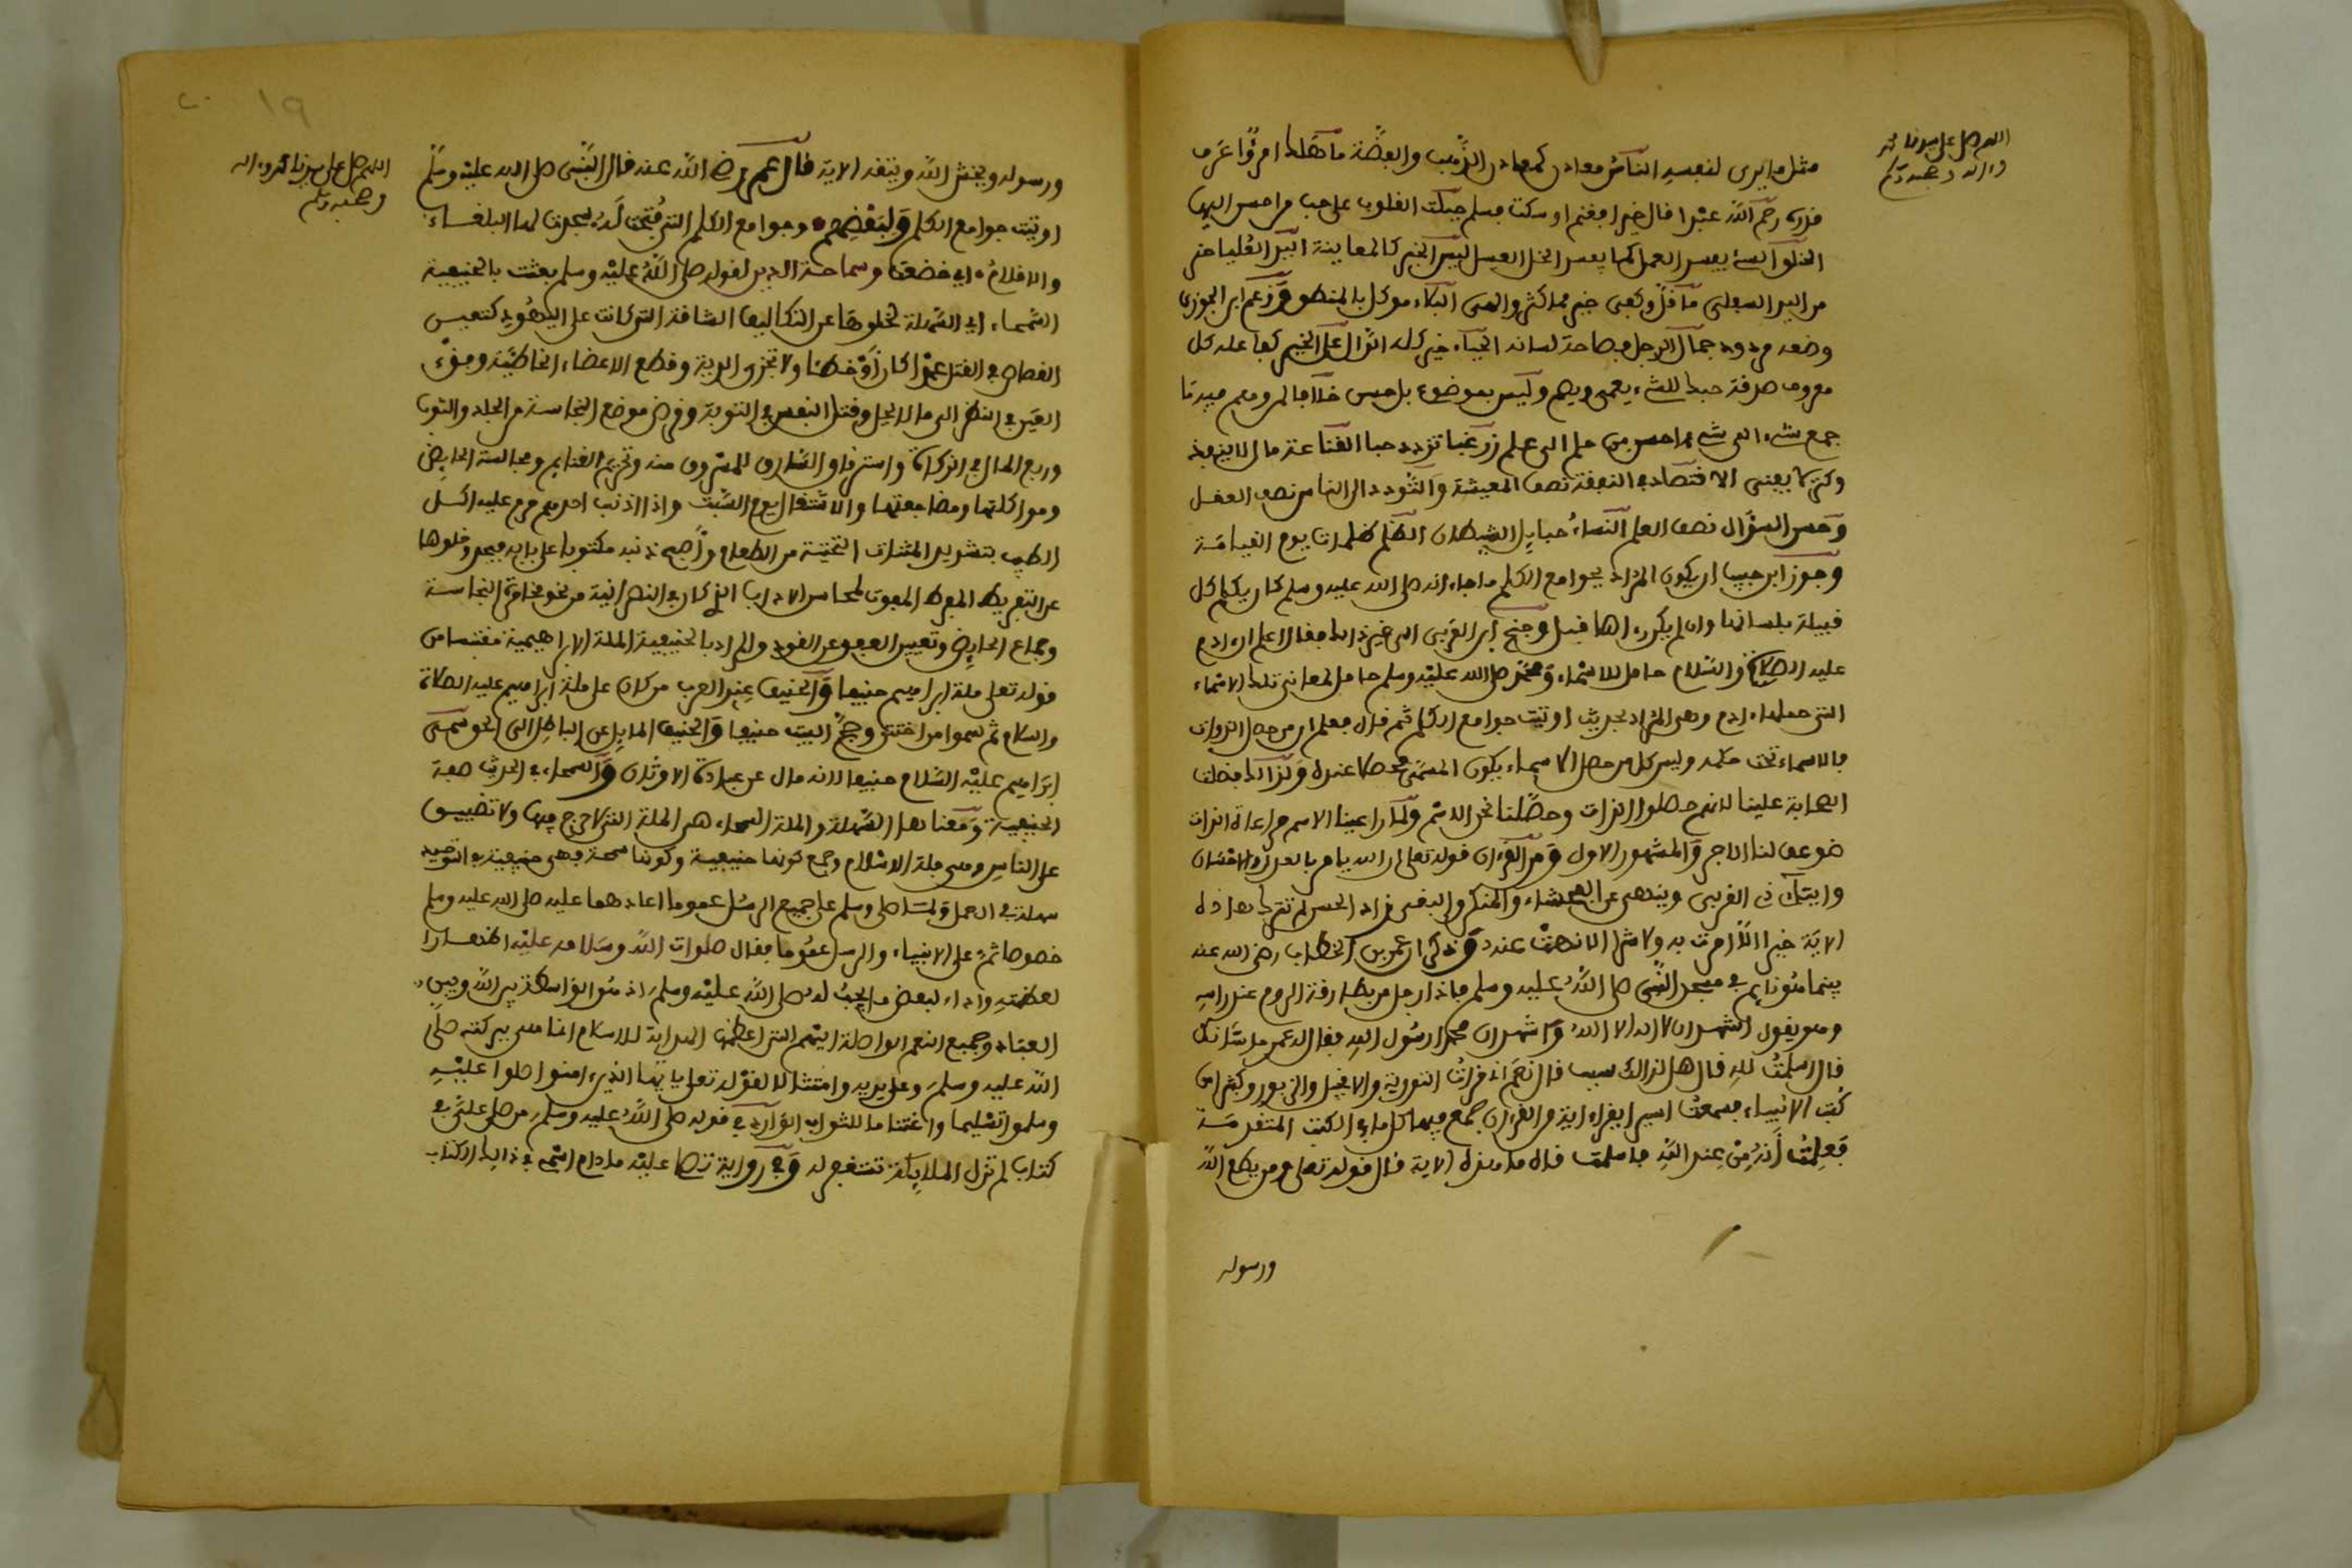 اللهم صل على سيدنا محمد
وءاله وصحبه وسلم
مثل ما يرى لنفسه الناس معادن كمعادن الذهب والفضة ما هلك امرؤ عرف
قدره رحم الله عبدا قال خيرا فغنم او سكت فسلم جبلت القلوب على حب من احسن اليها
الخلق السيئ يفسد العمل كما يفسد الخل العسل ليس الخبر كالمعاينة اليد العليا خير
من اليد السفلى ما قل وكفى خير مما كثر والهى البلاء موكل بالمنطق وزعم ابن الجوزي
وضعه مردود جمال الرجل فصاحة لسانه الحياء خير كله الدال على الخير كفاعله كل
معروف صدقة حبك للشيء يعمي ويصم وليس بموضوع بل حسن خلافا لمن وهم فيه ما
جمع شيء الى شيء احسن من حلم الى علم زر غبا تزدد حبا القناعة مال لا ينفد
وكنز لا يفنى الاقتصاد في النفقة نصف المعيشة والتودد الى الناس نصف العقل
وحسن السؤال نصف العلم النساء حبايل الشيطان الظلم ظلمات يوم القيامة
وجوز ابن حبيب ان يكون المراد بجوامع الكلم ما جاء انه صلى الله عليه وسلم كان يكلم كل
قبيلة بلسانها وان لم يكن رءاها قبل وجنح ابن العربي الى غير ذلك فقال اعلم ان ءادم
عليه الصلاة والسلام حامل للاسماء ومحمد صلى الله عليه وسلم حامل لمعاني تلك الاسماء
التي حملها ءادم وهي المراد بحديث اوتيت جوامع الكلم ثم قال فعلم ان من حصل الذوات
فالاسماء تحت حكمه وليس كل من حصل الاسماء يكون المسمى محصلا عنده ولذلك فضلت
الصحابة علينا لانهم حصلوا الذات وحصلنا نحن الاسم ولما راعينا الاسم مراعاة الذات
ضوعف لنا الاجر والمشهور الاول ومن القرءان قوله تعالى ان الله يامر بالعدل والاحسان
وايتاء ذي القربى وينهى عن الفحشاء والمنكر والبغي قال الحسن لم تترك هذه
الاية خيرا الا امرت به ولا شرا الا نهت عنه وذكر ان عمر بن الخطاب رضي الله عنه
بينما هو نايم في مسجد النبي صلى الله عليه وسلم فاذا رجل من بطارقة الروم عند راسه
وهو يقول اشهد ان لا اله الا الله واشهد ان محمدا رسول الله فقال له عمر ما شانك
قال اسلمت لله قال هل لذلك سبب قال نعم اني قرات التورية والانجيل والزبور وكثيرا من
كتب الانبياء فسمعت اسيرا يقرا ءاية من القرءان جمع فيها كل ما في الكتب المتقدمة
فعلمت انه من عند الله فاسلمت قال ما هذه الاية قال قوله تعالى ومن يطع الله
ورسوله
١٩
اللهم صل على سيدنا محمد وءاله
وصحبه وسلم
ورسوله ويخش الله ويتقه الاية قال عمر رضي الله عنه قال النبي صلى الله عليه وسلم
اوتيت جوامع الكلم ولبعضهم وجوامع الكلم التي فتحت له سجدت لها البلغاء
والاقلام اي خضعت وسماحة الدين لقوله صلى الله عليه وسلم بعثت بالحنيفية
السمحاء اي السهلة لخلوها عن التكاليف الشاقة التي كانت على اليهود كتعيين
القصاص في القتل عمدا كان او خطئا ولا تجزى الدية وقطع الاعضاء الخاطئة وفقء
العين في النظر الى ما لا يحل وقتل النفس في التوبة وقرض موضع النجاسة من الجلد والثوب
وربع المال في الزكاة واسترقاق السارق للمسروق منه وتحريم الغنايم ومجالسة الحايض
ومواكلتها ومضاجعتها والاشتغال يوم السبت واذا اذنب احدهم حرم عليه اكل
الطيب بتشديد المثناة التحتية من الطعام واصبح ذنبه مكتوبا على بابه فيجد وخلوها
عن التفريط المفرط المفوت لمحاسن الاداب الذي كان في النصرانية من نحو مخامرة النجاسة
وجماع الحايض وتعيين العفو عن القود والمراد بالحنيفية الملة الابراهيمية مقتبسا من
قوله تعلى ملة ابراهيم حنيفا والحنيف عند العرب من كان على ملة ابراهيم عليه الصلاة
والسلام ثم سموا من اختتن وحج البيت حنيفا والحنيف المايل عن الباطل الى الحق سمي
ابراهيم عليه السلام حنيفا لانه مال عن عبادة الاوثان والسمحاء في الحديث صفة
الحنيفية ومعناها السهلة والملة السمحاء هي الملة التي لا حرج فيها ولا تضييق
على الناس وهي ملة الاسلام وجمع كونها حنيفية وكونها سمحة فهي حنيفية في التوحيد
سهلة في العمل ولما صلى وسلم على جميع الرسل عموما اعادهما عليه صلى الله عليه وسلم
خصوصا ثم على الانبياء والرسل عموما فقال صلوات الله وسلامه عليه اظهارا
لعظمته واداء لبعض ما يجب له صلى الله عليه وسلم اذ هو الواسطة بين الله وبين
العباد وجميع النعم الواصلة اليهم التي اعظمها الهداية للاسلام انما هي ببركته صلى
الله عليه وسلم وعلى يديه وامتثالا لقوله تعلى يايها الذين ءامنوا صلوا عليه
وسلموا تسليما واغتناما للثواب الوارد في قوله صلى الله عليه وسلم من صلى علي في
كتاب لم تزل الملايكة تستغفر له وفي رواية تصلي عليه ما دام اسمي في ذلك الكتاب